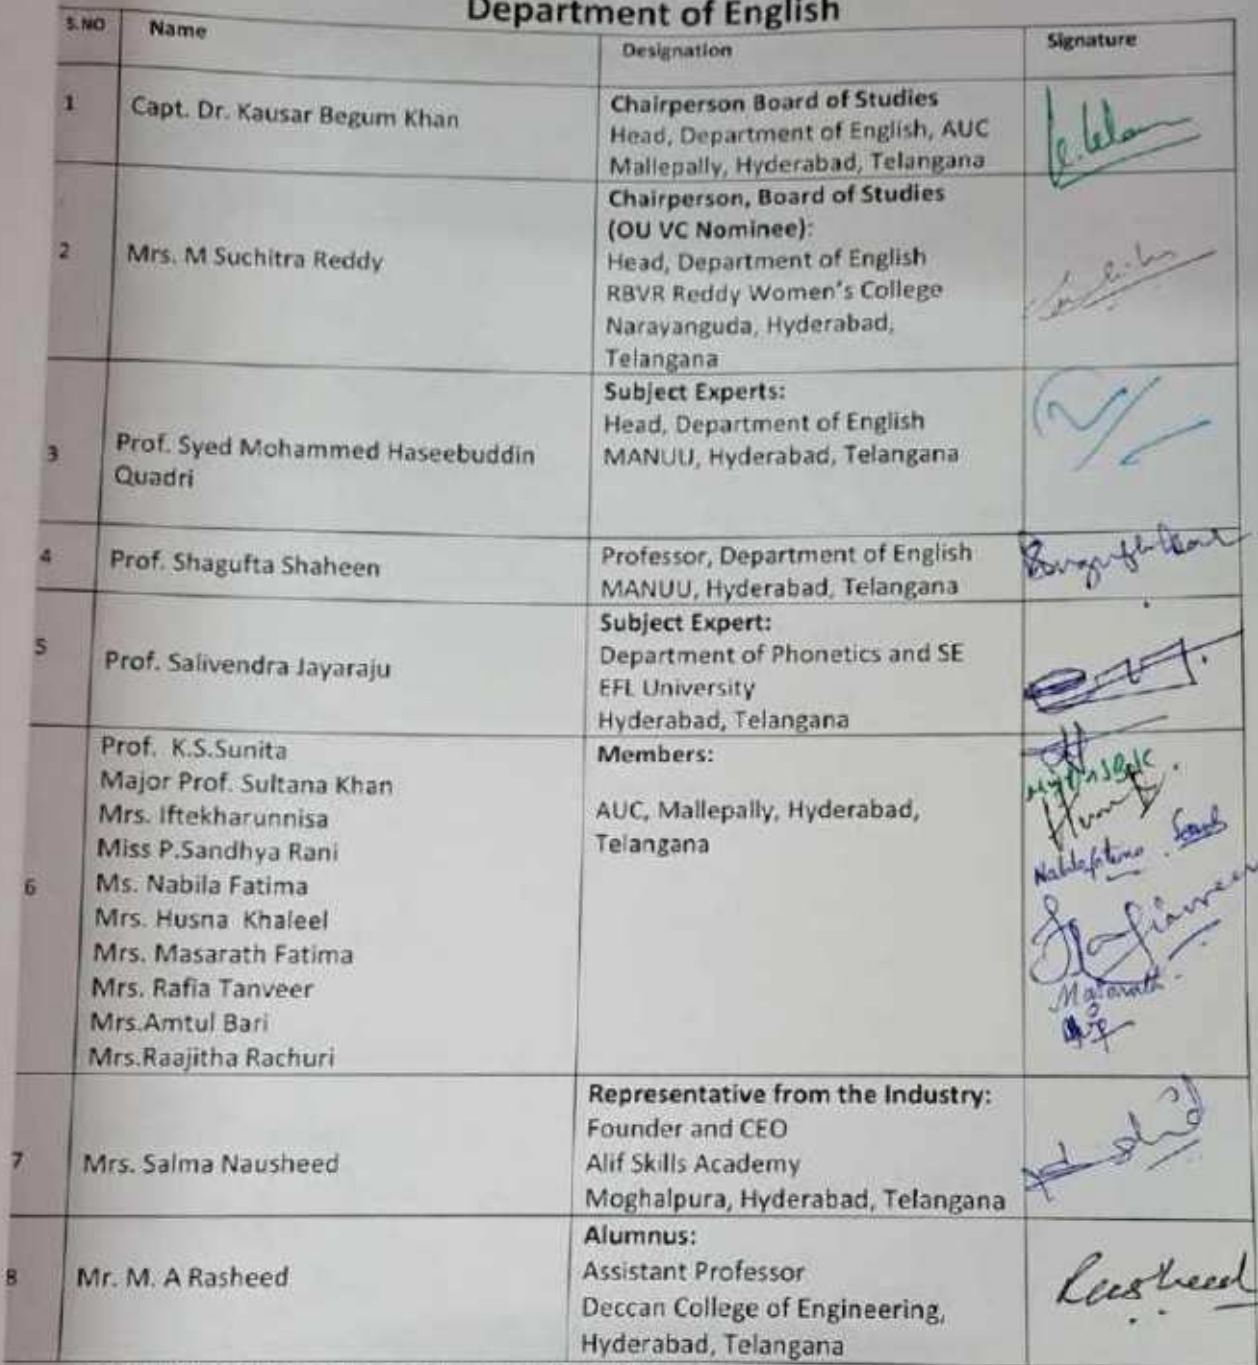 Department of English
S.NO Name Designation Signature
1 Capt. Dr. Kausar Begum Khan Chairperson Board of Studies
Head, Department of English, AUC
Mallepally, Hyderabad, Telangana
2 Mrs. M Suchitra Reddy Chairperson, Board of Studies
(OU VC Nominee):
Head, Department of English
RBVR Reddy Women's College
Narayanguda, Hyderabad,
Telangana
3 Prof. Syed Mohammed Haseebuddin
Quadri
Subject Experts:
Head, Department of English
MANUU, Hyderabad, Telangana
4 Prof. Shagufta Shaheen Professor, Department of English
MANUU, Hyderabad, Telangana
5 Prof. Salivendra Jayaraju Subject Expert:
Department of Phonetics and SE
EFL University
Hyderabad, Telangana
6 Prof. K.S.Sunita
Major Prof. Sultana Khan
Mrs. Iftekharunnisa
Miss P.Sandhya Rani
Ms. Nabila Fatima
Mrs. Husna Khaleel
Mrs. Masarath Fatima
Mrs. Rafia Tanveer
Mrs.Amtul Bari
Mrs.Raajitha Rachuri
Members:
AUC, Mallepally, Hyderabad,
Telangana
Nabila fatima
Masarath
7 Mrs. Salma Nausheed Representative from the Industry:
Founder and CEO
Alif Skills Academy
Moghalpura, Hyderabad, Telangana
8 Mr. M. A Rasheed Alumnus:
Assistant Professor
Deccan College of Engineering,
Hyderabad, Telangana
Rasheed